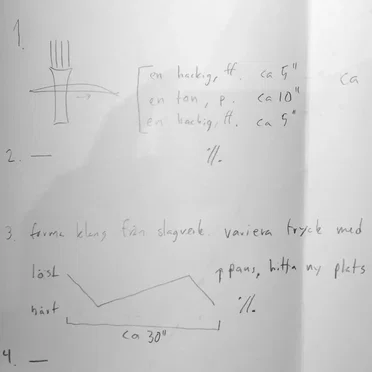 1.
en hackig, ff. ca 5" ca
en ton, p. ca 10"
en hackig, ff. ca 5"
2. — ·/.
3. forma klang från slagverk. variera tryck med
löst ↑ paus, hitta ny plats
hårt ·/.
ca 30"
4. —